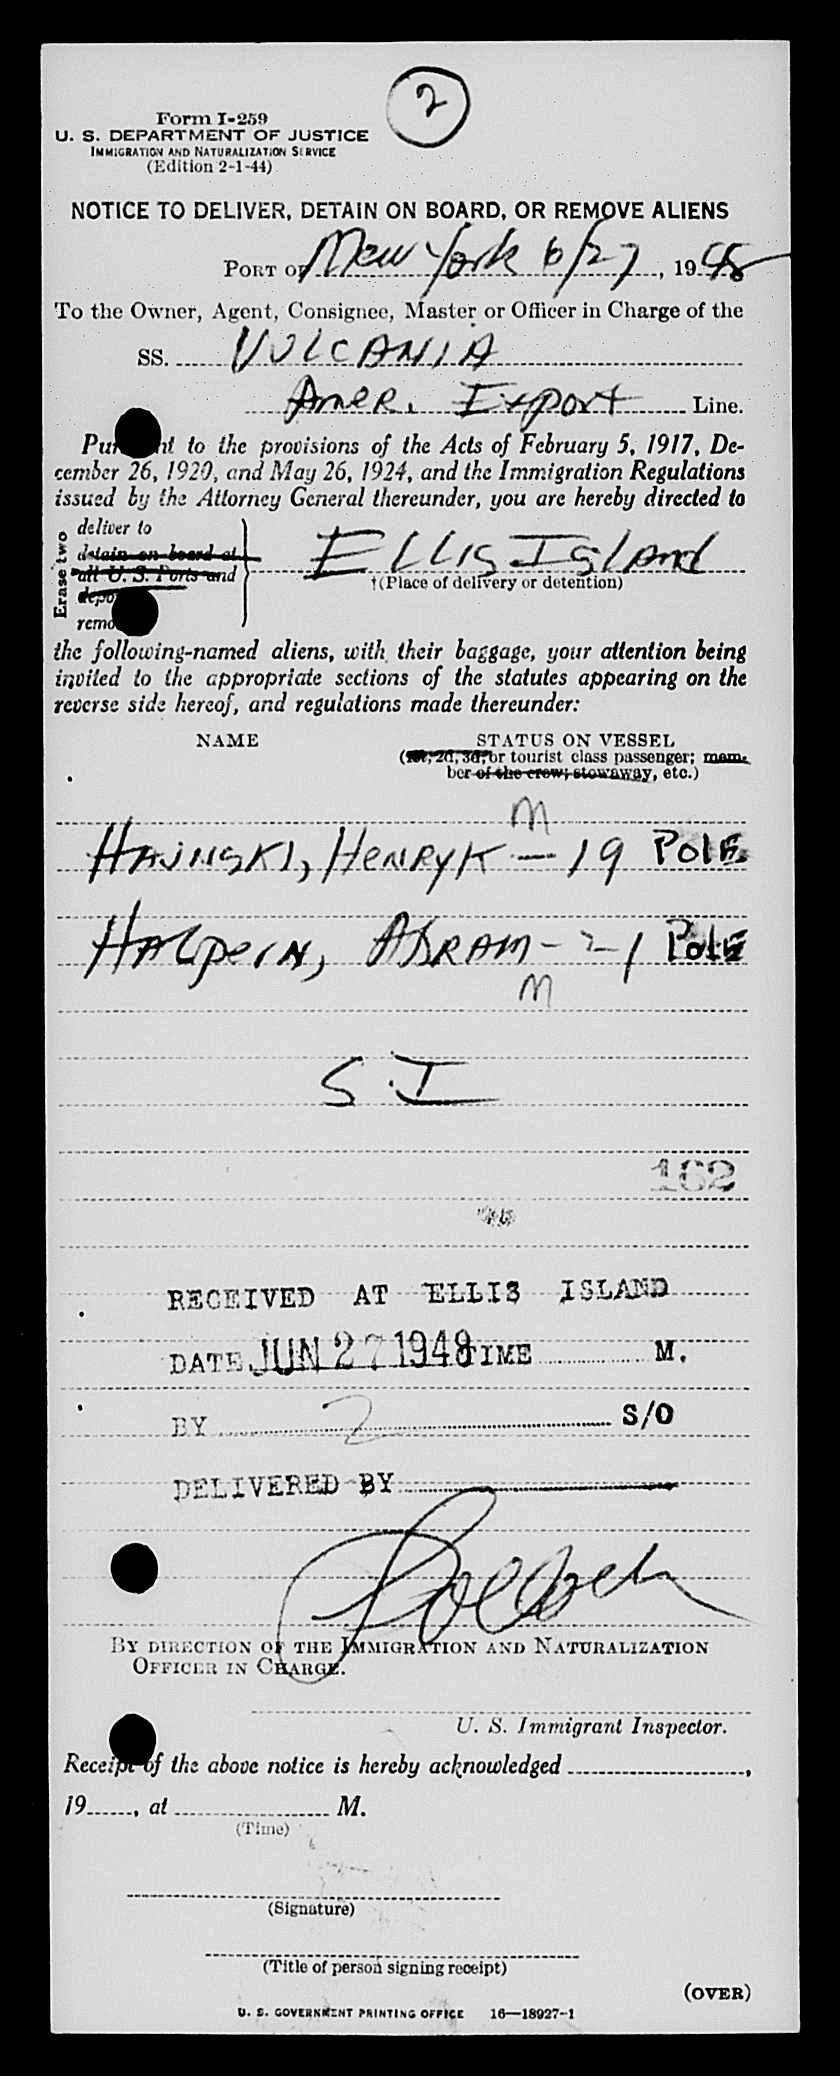 2
Form I-259
U. S. DEPARTMENT OF JUSTICE
IMMIGRATION AND NATURALIZATION SERVICE
(Edition 2-1-44)
NOTICE TO DELIVER, DETAIN ON BOARD, OR REMOVE ALIENS
PORT OF New York 6/27, 1948
To the Owner, Agent, Consignee, Master or Officer in Charge of the
SS. VULCANIA
Amer. Export Line.
to the provisions of the Acts of February 5, 1917, De-
cember 26, 1920, and May 26, 1924, and the Immigration Regulations
issued by the Attorney General thereunder, you are hereby directed to
Erase two
deliver to
detain on board at
all U. S. Ports and
Ellis Island
†(Place of delivery or detention)
the following-named aliens, with their baggage, your attention being
invited to the appropriate sections of the statutes appearing on the
reverse side hereof, and regulations made thereunder:
NAME STATUS ON VESSEL
(1st, 2d, 3d, or tourist class passenger; mem-
ber of the crew; stowaway, etc.)
M
HENRYK — 19 POLE
HALPERN, ABRAM - 21 Pole
M
S.I
162
RECEIVED AT ELLIS ISLAND
DATE JUN 27 1948 TIME M.
BY 2 S/O
DELIVERED BY
BY DIRECTION OF THE IMMIGRATION AND NATURALIZATION
OFFICER IN CHARGE.
U. S. Immigrant Inspector.
Receipt of the above notice is hereby acknowledged ,
19 , at M.
(Time)
(Signature)
(Title of person signing receipt)
(OVER)
U. S. GOVERNMENT PRINTING OFFICE 16—18927-1